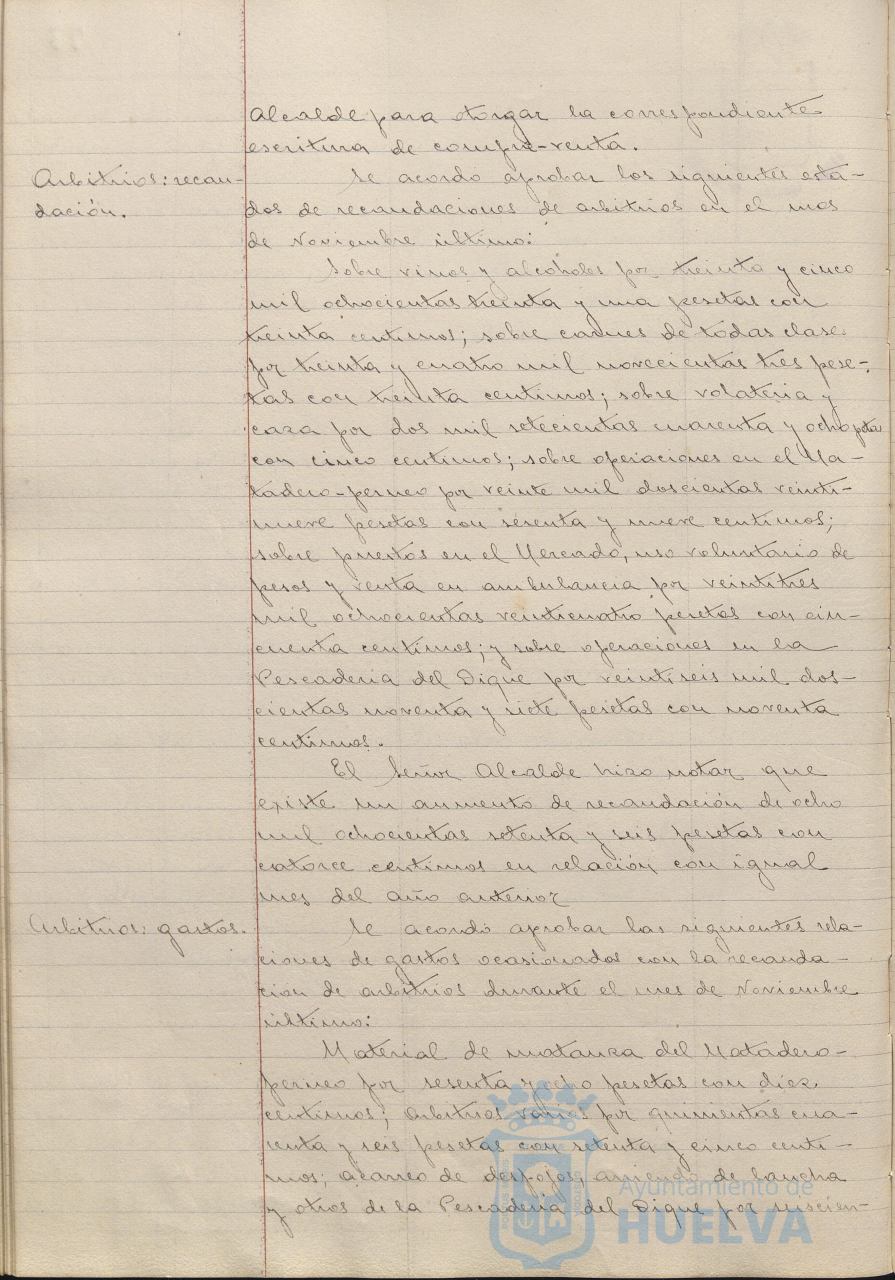 Alcalde para otorgar la correspondiente
escritura de compra-venta.
Arbitrios: recau-
dación.
Se acordó aprobar los siguientes esta-
dos de recaudaciones de arbitrios en el mes
de Noviembre último:
Sobre vinos y alcoholes por treinta y cinco
mil ochocientas treinta y una pesetas con
treinta centimos; sobre carnes de todas clase
por treinta y cuatro mil novecientas tres pese-
tas con treinta centimos; sobre volateria y
caza por dos mil setecientas cuarenta y ocho ptas
con cinco centimos; sobre operaciones en el Ma-
tadero-perneo por veinte mil doscientas veinti-
nueve pesetas con sesenta y nueve centimos;
sobre puestos en el Mercado, uso voluntario de
pesos y venta en ambulancia por veintitres
mil ochocientas veinticuatro pesetas con cin-
cuenta centimos; y sobre operaciones en la
Pescaderia del Dique por veintiseis mil dos-
cientas noventa y siete pesetas con noventa
centimos.
El Señor Alcalde hizo notar que
existe un aumento de recaudación de ocho
mil ochocientas setenta y seis pesetas con
catorce centimos en relación con igual
mes del año anterior
Arbitrios: gastos.
Se acordó aprobar las siguientes rela-
ciones de gastos ocasionados con la recauda-
ción de arbitrios durante el mes de Noviembre
último:
Material de matanza del Matadero-
perneo por sesenta y ocho pesetas con diez
centimos; arbitrios varios por quinientas cua-
renta y seis pesetas con setenta y cinco centi-
mos; acarreo de despojos, arriendo de lancha
y otros de la Pescaderia del Dique por seiscien-
Ayuntamiento de
HUELVA